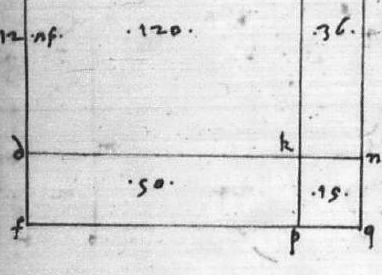 12 .nf. .120. .36.
d k n
.50. .15.
f p q